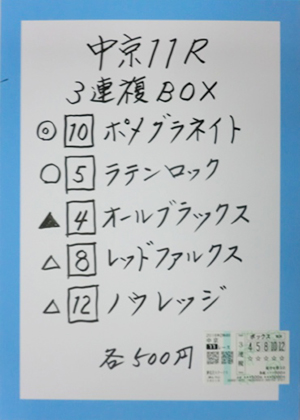 中京11R
3連複BOX
◎ 10 ポメグラネイト
○ 5 ラテンロック
▲ 4 オールブラックス
△ 8 レッドファルクス
△ 12 ノウレッジ
各500円
中京
11
3連複
ボックス
4 5 8 10 12